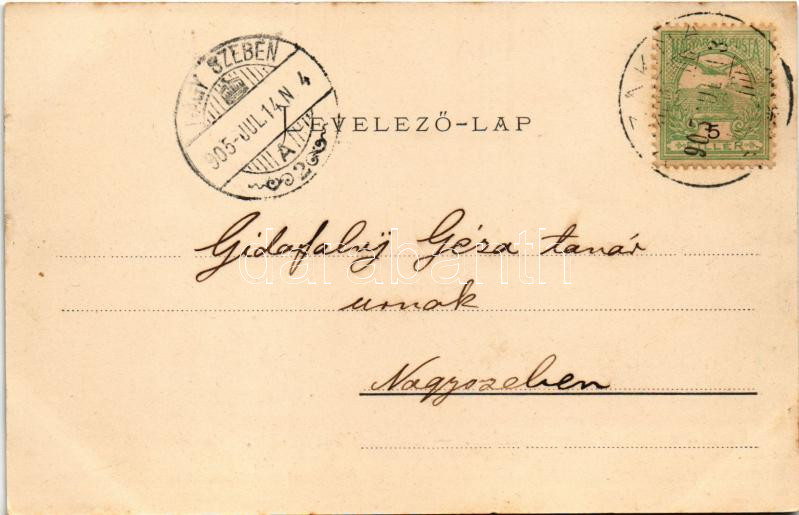 NAGY SZEBEN
905-JUL.14.N 4
A
2
LEVELEZŐ-LAP
MAGYAR KIR. POSTA
5
FILLÉR
905 JUL
Gidofalvy Géza tanár
urnak
Nagyszeben
darabanth